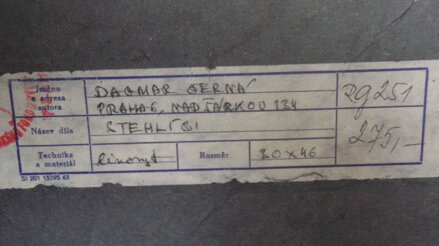 Jméno a adresa autora
DAGMAR ČERNÁ
PRAHA 6, NAD ŠÁRKOU 134
rg 251
Název díla
STEHLÍCI
275,-
Technika a materiál
linoryt
Rozměr
30 x 46
St 201 15395 63